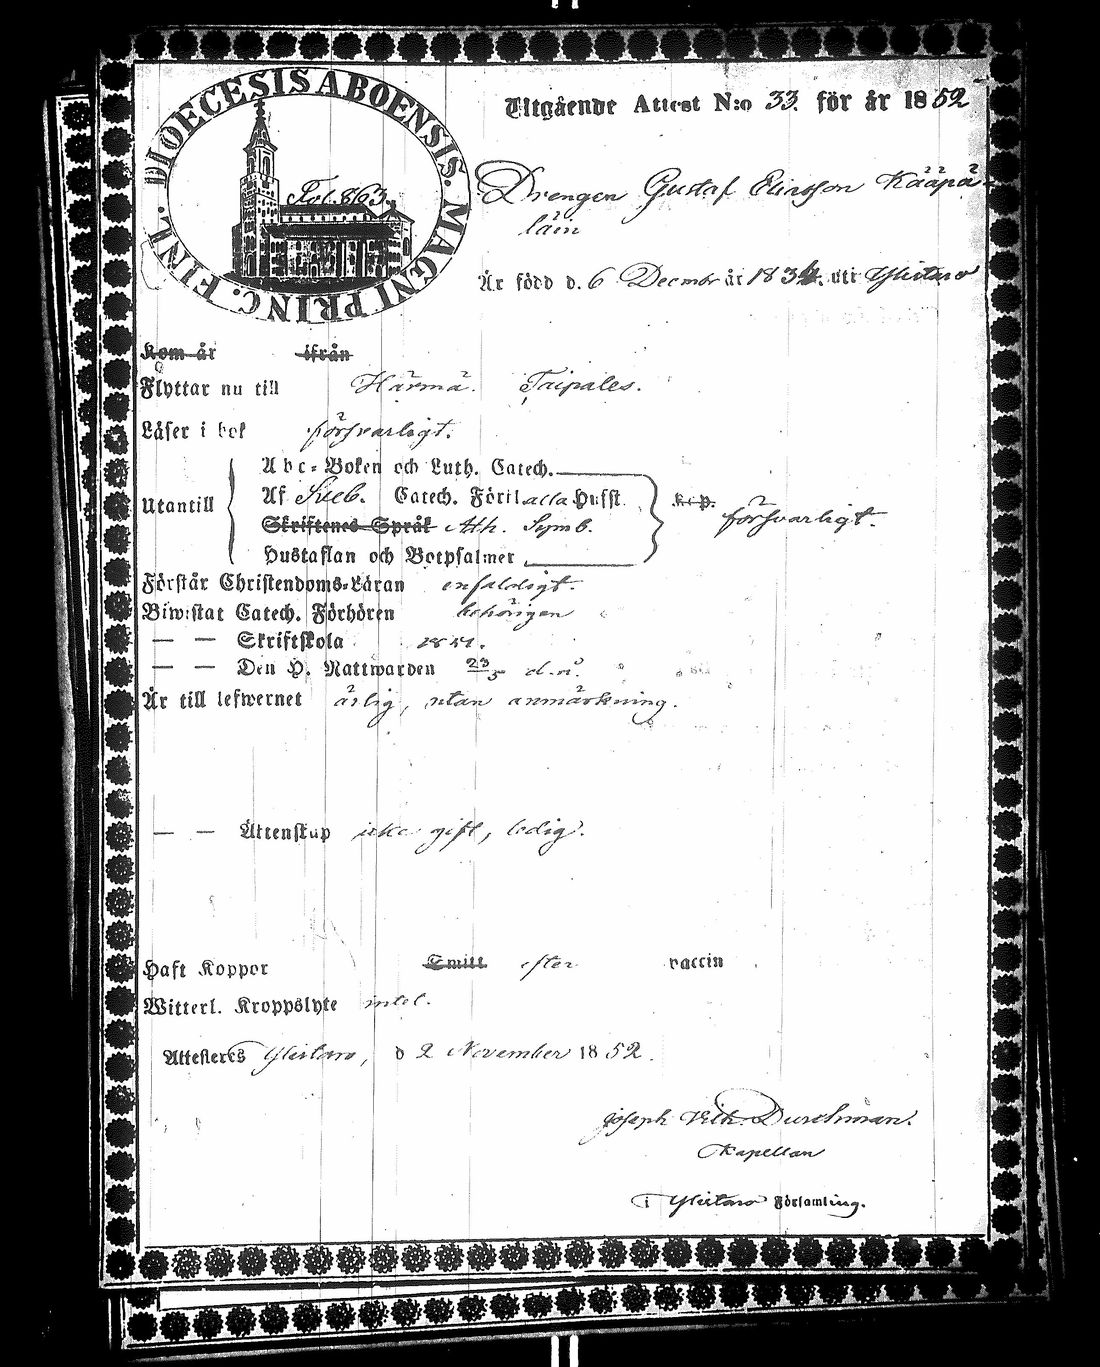 DIOECESIS ABOENSIS. MAGNI PRINC. FINL.
Fol. 863.
Utgående Attest N:o 33. för år 1852
Drengen Gustaf Eliasson Kääpä-
läin
Är född d. 6 Decmbr år 1834. uti Ylistaro
Kom år ifrån
Flyttar nu till Härmä. Taipales.
Läser i bok försvarligt.
Utantill
Abc-Boken och Luth. Catech.
Af Sveb. Catech. Förkl. alla Hufst.
Skriftenes Språk Ath. Symb.
Hustaflan och Botpsalmer
försvarligt.
Förstår Christendoms-Läran enfaldigt.
Biwistat Catech. Förhören behörigen
— — Skriftskola 1851.
— — Den H. Nattwarden 23/5 d.å.
Är till lefwernet ärlig, utan anmärkning.
— — Ättenskap icke gift, ledig.
Haft Koppor Smitt efter vaccin
Witterl. Kroppslyte intet.
Attesteres Ylistaro, d 2 November 1852.
Joseph Vilh. Durchman.
Kapellan
i Ylistaro Församling.